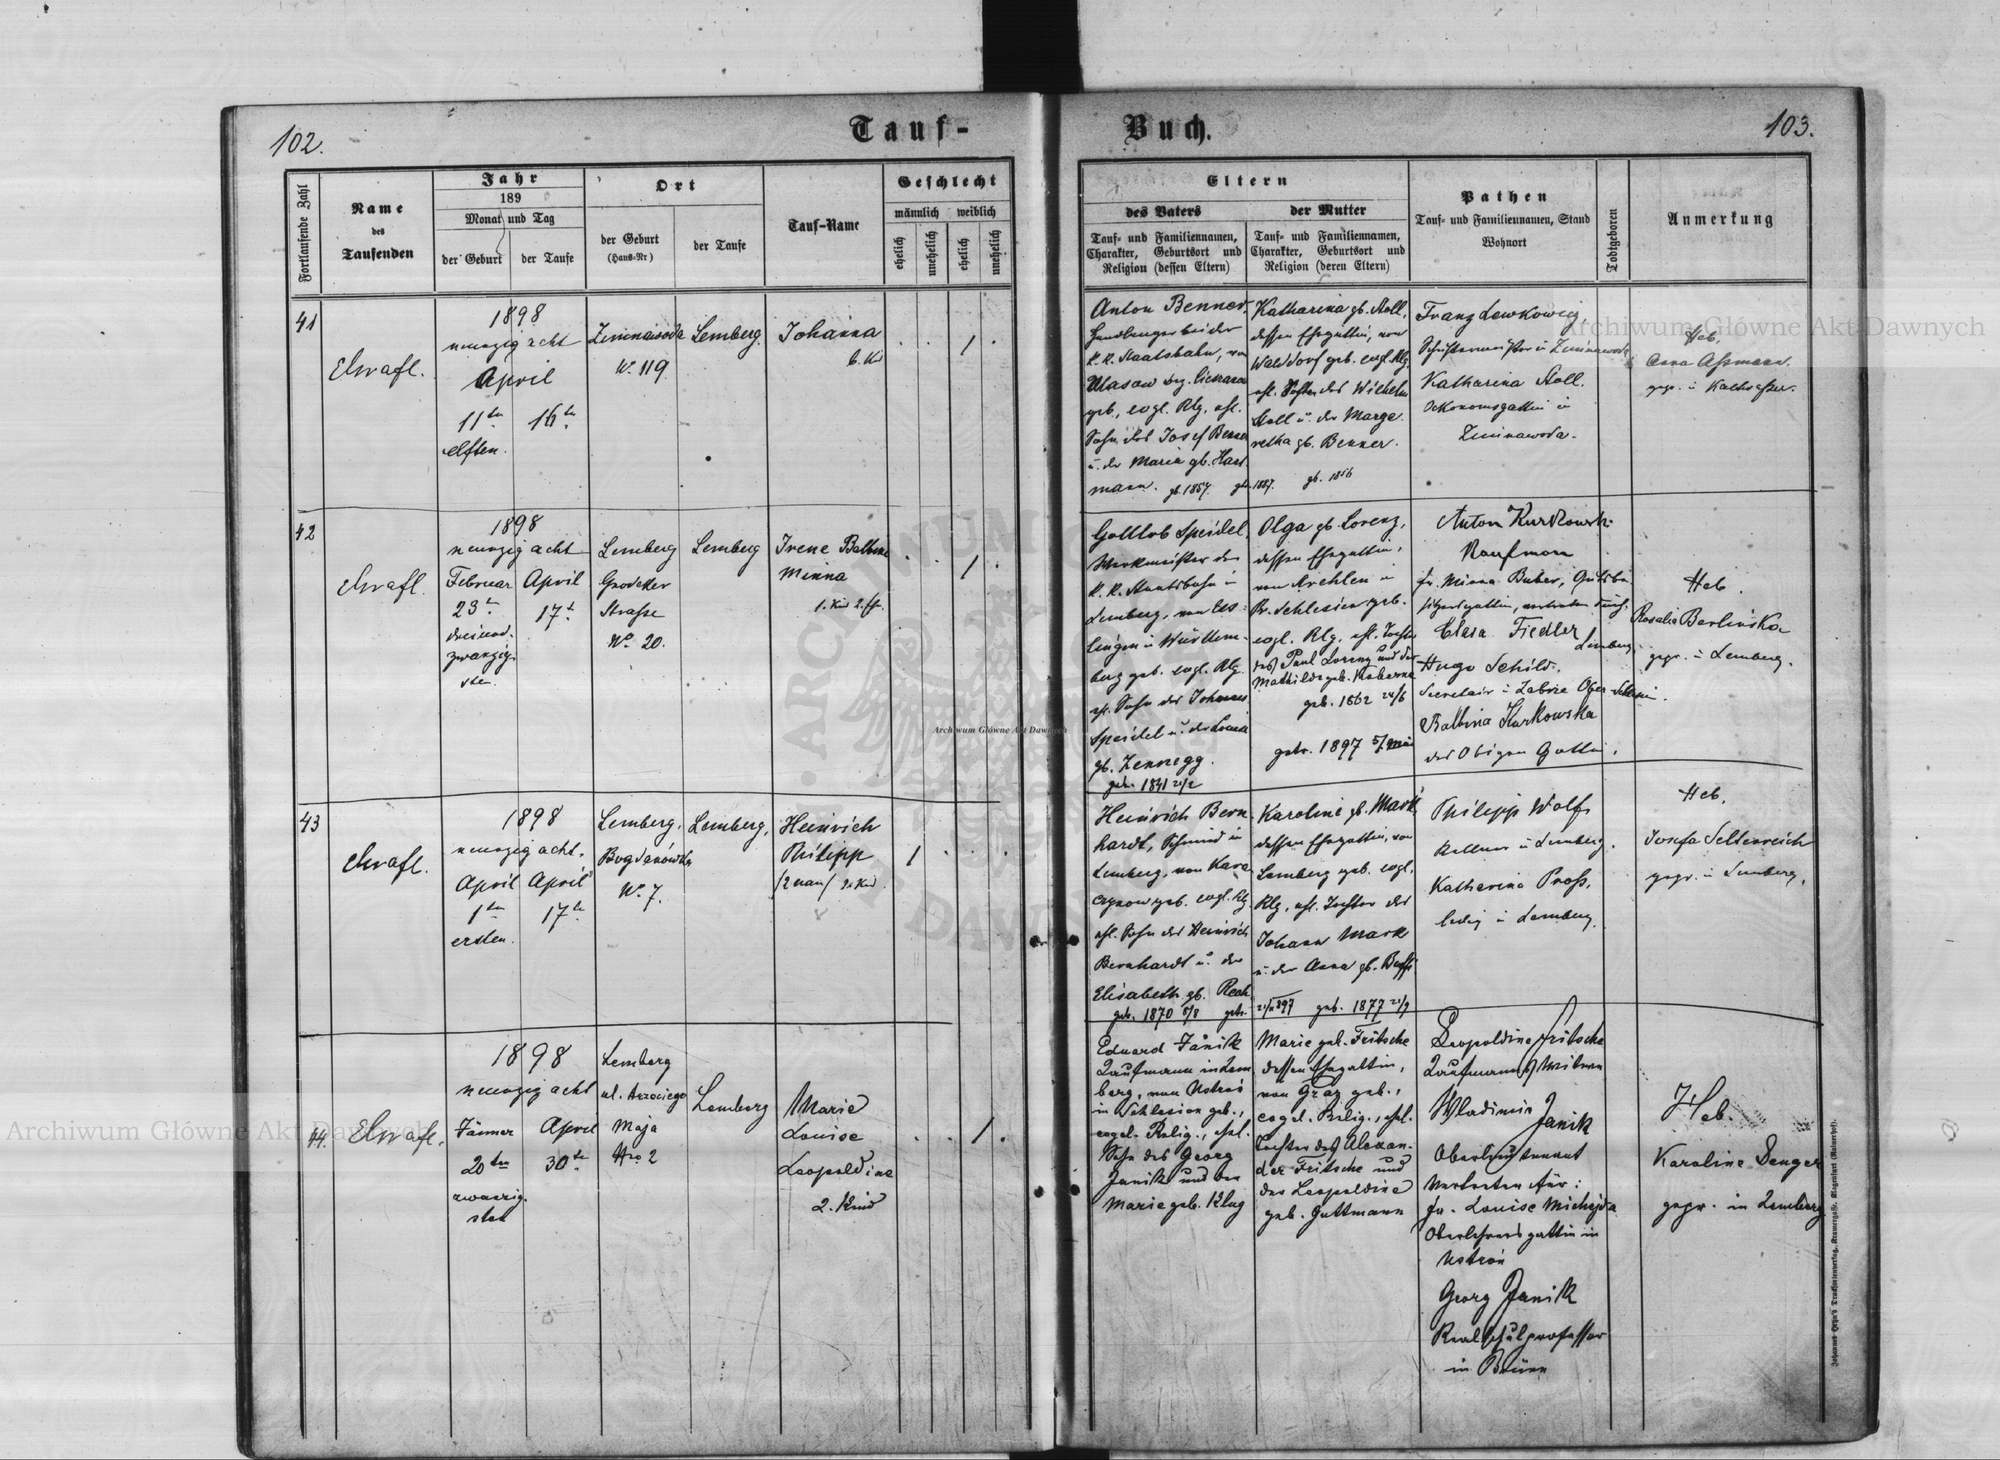 102.
Tauf-
Buch.
103.
Fortlaufende Zahl
Name
des
Taufenden
Jahr
189
Monat und Tag
der Geburt
der Taufe
Ort
der Geburt
(Haus-Nr)
der Taufe
Tauf-Name
Geschlecht
männlich weiblich
ehelich
unehelich
ehelich
unehelich
Eltern
des Vaters
der Mutter
Tauf- und Familiennamen,
Charakter, Geburtsort und
Religion (dessen Eltern)
Tauf- und Familiennamen,
Charakter, Geburtsort und
Religion (deren Eltern)
Pathen
Tauf- und Familiennamen, Stand
Wohnort
Todtgeboren
Anmerkung
41
1898
neunzig acht
April
11ten
16ten
elften.
Zimnawoda
Nr. 119
Lemberg.
Johanna
6. Kd
1
Anton Benner,
Handlanger bei der
k.k. Staatsbahn, von
geb., evgl. Rlg, ehl.
Sohn des Josef Benner
u. der Maria gb. Hart
mann. gb. 1857.
Katharina gb. Stoll,
dessen Ehegattin, von
Walddorf geb. evgl. Rlg
ehl. Tochter des Wilhelm
Stoll u. der Marga
retha gb. Benner.
gb. 1856
Franz Lewkowicz
Schustermeister in Zimnawoda
Katharina Stoll.
Oekonomsgattin in
Zimnawoda.
Heb.
Anna Assmann.
gepr. in
42
1898
neunzig acht
Februar April
23ten
17ten
dreiund-
zwanzig-
sten.
Lemberg
Grodeker
Strasse
No. 20.
Lemberg
Irene Balbine
Minna
1. Kind
1
Gottlob Speidel,
Werkmeister der
k.k. Staatsbahn in
Lemberg, von Ess
lingen in Württem-
berg geb. evgl. Rlg.
ehl. Sohn des Johannes
Speidel u. der
gb. Zennegg.
geb. 1841
Olga gb Lorenz,
dessen Ehegattin,
von in
Pr. Schlesien geb.
evgl. Rlg. ehl. Tochter
des Paul Lorenz und der
Mathilde geb.
geb. 1862 24/6
getr. 1897 5/Mai
Anton Kurkowski
Kaufmann
fr. Minna Buber, Gutsbe
sitzersgattin, vertreten durch
Clara Fiedler
Lemberg
Hugo Schild.
Secretair in Zabrze Ober-Schlesien.
Balbina Kurkowska
des Obigen Gattin.
Heb.
Rosalia Berlinska
gepr. in Lemberg.
43
1898
neunzig acht.
April April
1ten
17ten
ersten.
Lemberg,
Bogdanówka
Nr. 7.
Lemberg,
Heinrich
Philipp
1
Heinrich Bern
hardt, Schmied in
Lemberg, von Kara
geb. evgl. Rlg.
ehl. Sohn des Heinrich
Bernhardt u. der
Elisabeth gb.
geb. 1870 5/8 getr.
Karoline gb. Mark,
dessen Ehegattin, von
Lemberg geb. evgl.
Rlg, ehl. Tochter des
Johann Mark
u. der Anna gb.
geb. 1877
Philipp Wolf,
Kellner in Lemberg.
Katharina Pross,
ledig in Lemberg.
Heb.
Josefa Seltenreich
gepr. in Lemberg.
44.
1898
neunzig acht
Jänner
April
20ten
30te
zwanzig-
sten
Lemberg
ul. trzeciego
Maja
Nro 2
Lemberg
Marie
Louise
Leopoldine
2. Kind
1
Eduard Janik
Kaufmann in Lem
berg, von Ustroń
in Schlesien geb.,
evgel. Relig., ehel.
Sohn des Georg
Janik und der
Marie geb. Klug
Marie geb. Fritsche
dessen Ehegattin,
von Graz geb.,
evgel. Relig., ehel.
Tochter des Alexan-
der Fritsche und
der Leopoldine
geb. Guttmann
Leopoldine Fritsche
Kaufmanns Witwe
Wladimir
Janik
Oberleutnant
Vertreten für:
fr. Louise Michejda
Oberlehrersgattin in
Ustroń
Georg Janik
Realschulprofessor
in Brünn
Heb.
Karoline Denger
gepr. in Lemberg
Archiwum Główne Akt Dawnych
Archiwum Główne Akt Dawnych
Archiwum Główne Akt Dawnych